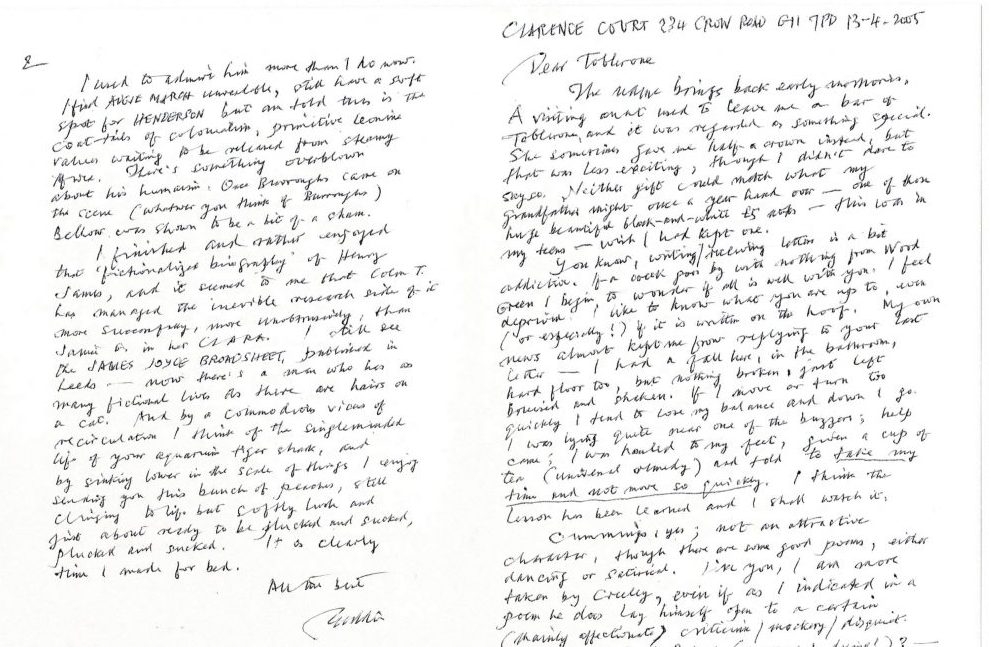 CLARENCE COURT 234 CROW ROAD G11 7PD 13-4-2005
Dear Toblerone
The name brings back early memories.
A visiting aunt used to leave me a bar of
Toblerone, and it was regarded as something special.
She sometimes gave me half a crown instead, but
that was less exciting, though I didn't dare to
say so. Neither gift could match what my
grandfather might once a year hand over — one of those
huge beautiful black-and-white £5 notes — this was in
my teens — wish I had kept one.
You know, writing/receiving letters is a bit
addictive. If a week goes by with nothing from Word
Green I begin to wonder if all is well with you. I feel
deprived. I like to know what you are up to, even
(or especially!) if it is written on the hoof. My own
news almost kept me from replying to your last
letter — I had a fall here, in the bathroom,
hard floor too, but nothing broken, just left
bruised and shaken. If I move or turn too
quickly I tend to lose my balance and down I go.
I was lying quite near one of the buzzers; help
came; I was hauled to my feet, given a cup of
tea (universal remedy) and told to take my
time and not move so quickly. I think the
lesson has been learned and I shall watch it.
Cummings, yes; not an attractive
character, though there are some good poems, either
dancing or satirical. Like you, I am more
taken by Creeley, even if as I indicated in a
poem he does lay himself open to a certain
(mainly affectionate) criticism/mockery/disquiet.
2
I used to admire him more than I do now.
I find AUGIE MARCH unreadable, still have a soft
spot for HENDERSON but am told this is the
coat-tails of colonialism, primitive leonine
values waiting to be released from steamy
Africa. There's something overblown
about his humanism. Once Burroughs came on
the scene (whatever you think of Burroughs)
Bellow was shown to be a bit of a sham.
I finished and rather enjoyed
that 'fictionalized biography' of Henry
James, and it seemed to me that Colm T.
has managed the inevitable research side of it
more successfully, more unobtrusively, than
Janice G. in her CLARA. I still see
the JAMES JOYCE BROADSHEET, published in
Leeds — now there's a man who has as
many fictional lives as there are hairs on
a cat. And by a commodius vicus of
recirculation I think of the singleminded
life of your aquarium tiger shark, and
by sinking lower in the scale of things I enjoy
sending you this bunch of peaches, still
clinging to life but softly lush and
just about ready to be plucked and sucked,
plucked and sucked. It is clearly
time I made for bed.
All the best